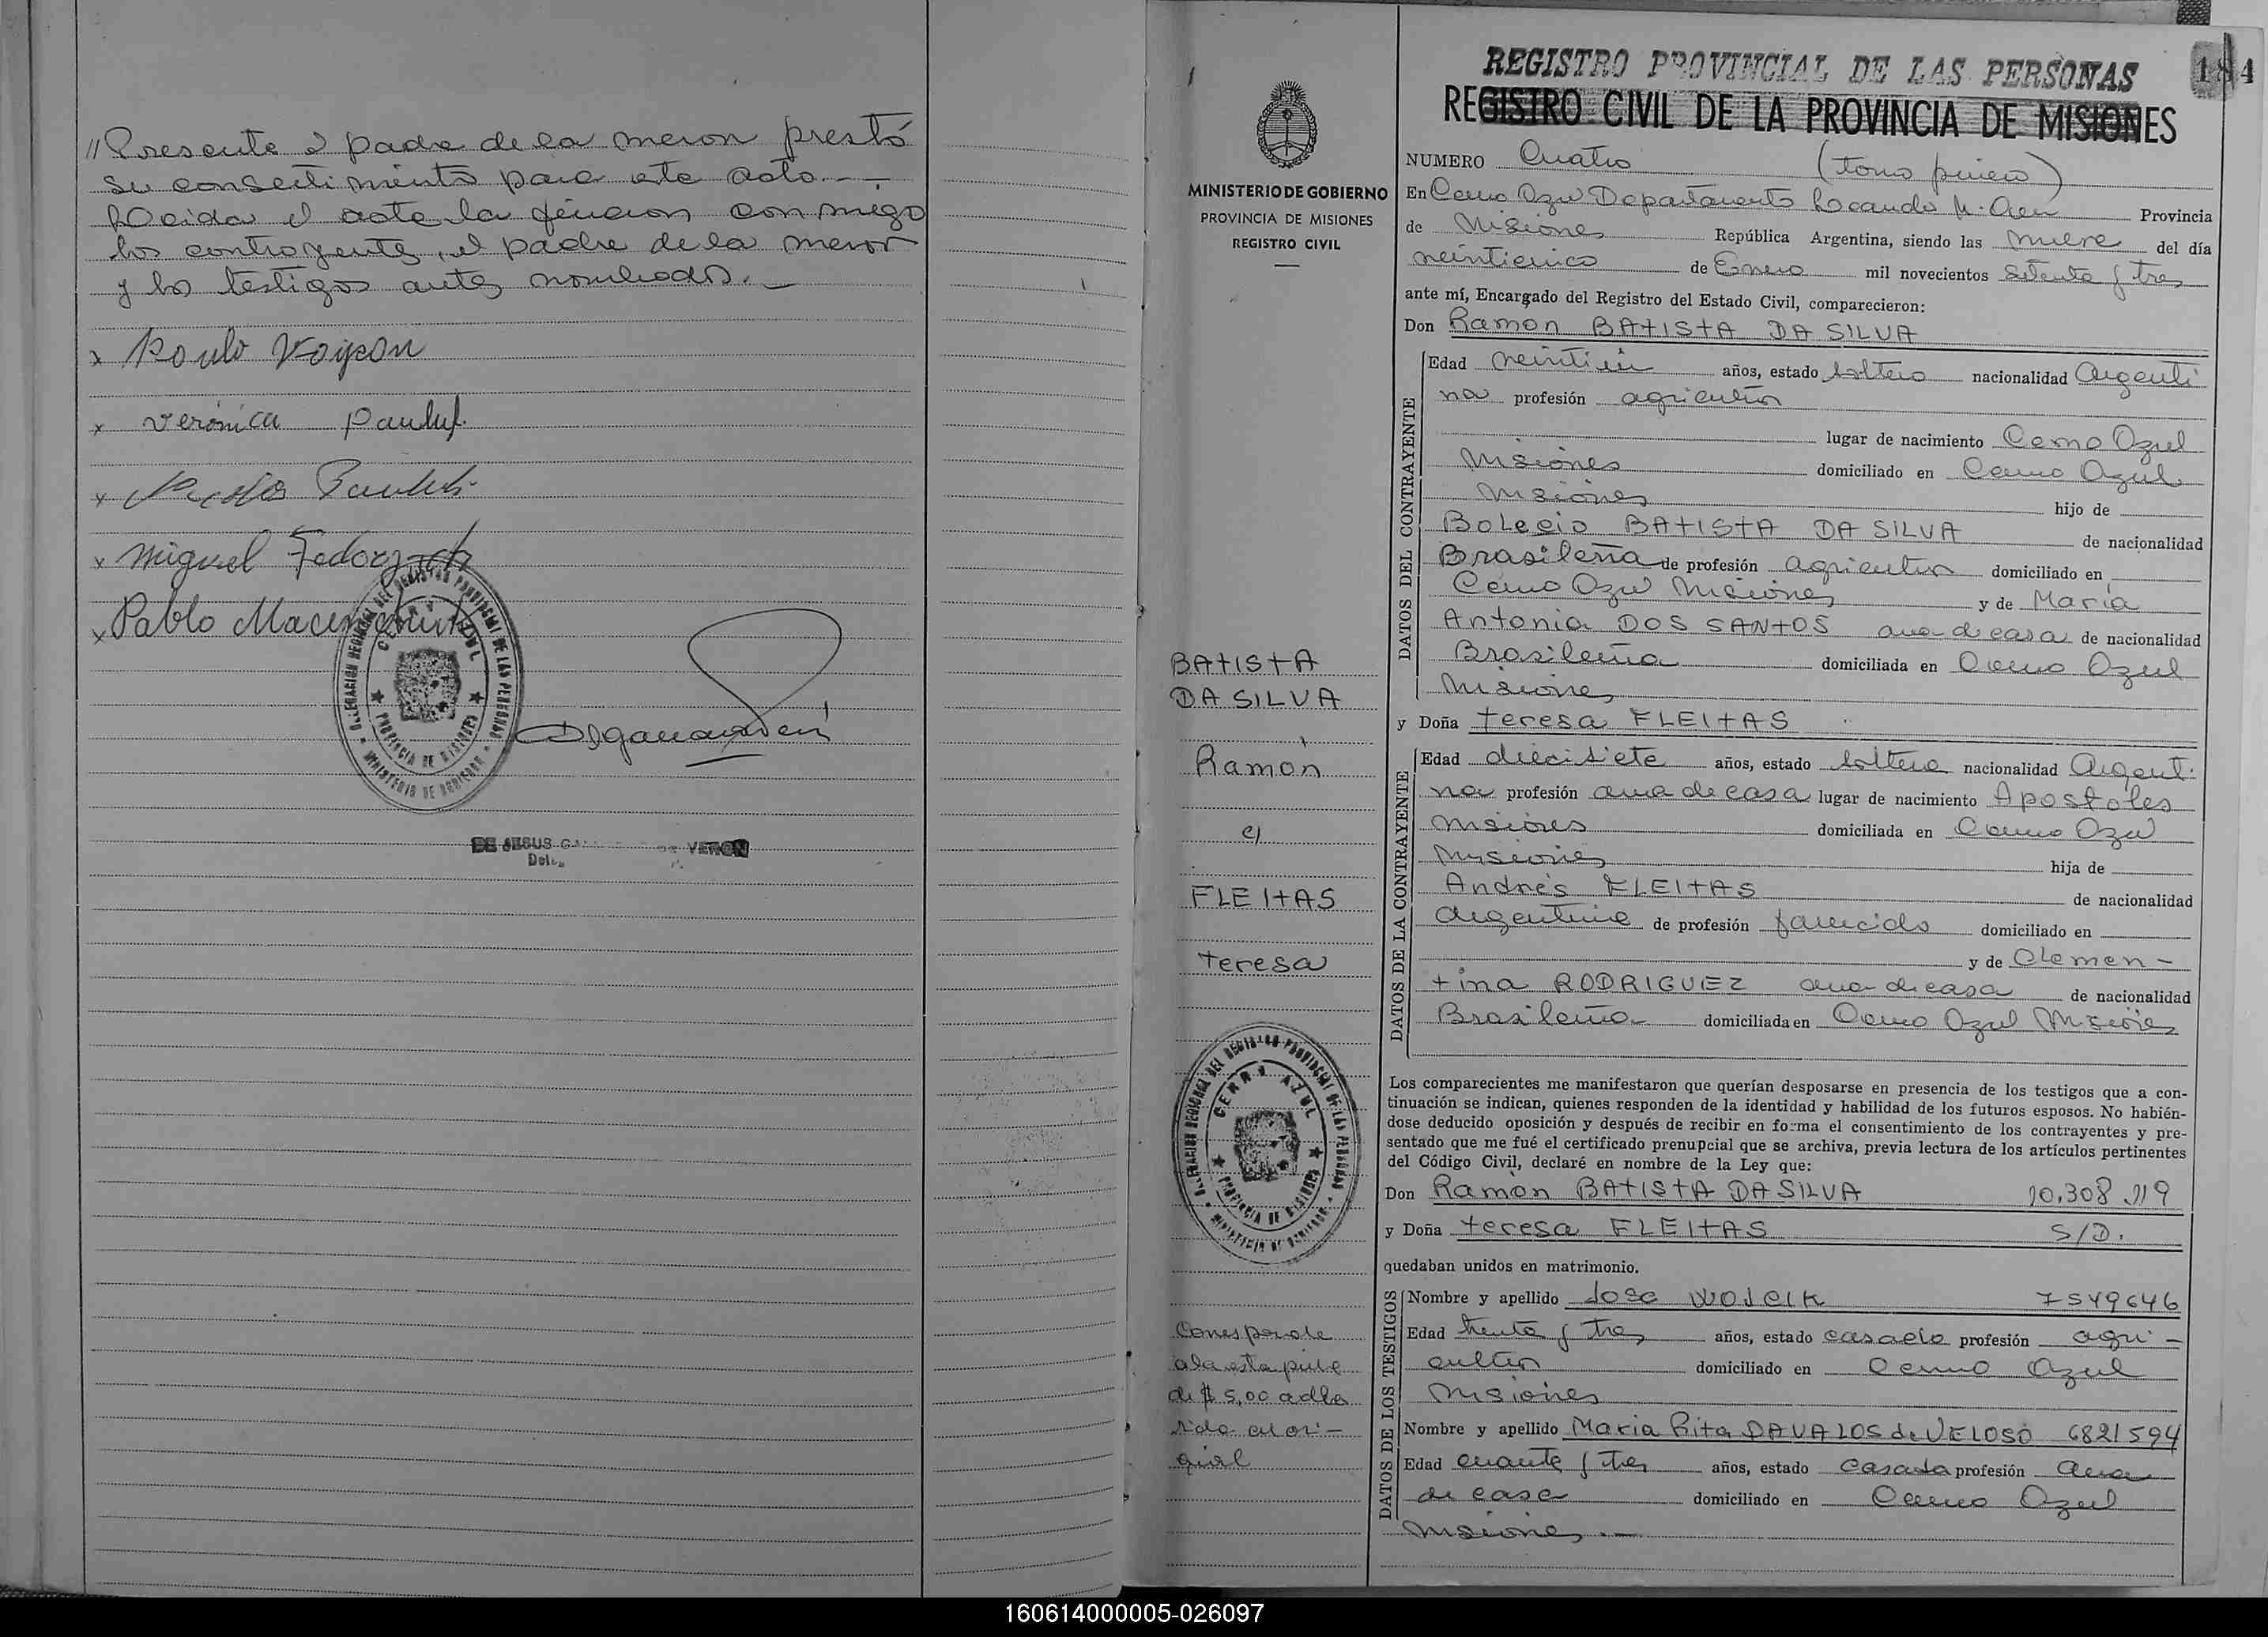 "Presente el padre de la menor prestó
su consentimiento para este acto. — . —
Leída el acta la firman conmigo
los contrayentes, el padre de la menor
y los testigos antes nombrados. —
x Paulo
x Verónica Pauluk
x Pauluk
x Miguel Fedorczuk
x Pablo
DELEGACION REGIONAL DEL REGISTRO PROVINCIAL DE LAS PERSONAS
CERRO AZUL
PROVINCIA DE MISIONES
MINISTERIO DE GOBIERNO
DE JESUS DE VERON
MINISTERIO DE GOBIERNO
PROVINCIA DE MISIONES
REGISTRO CIVIL
BATISTA
DA SILVA
Ramón
c/
FLEITAS
Teresa
DELEGACION REGIONAL DEL REGISTRO PROVINCIAL DE LAS PERSONAS
CERRO AZUL
PROVINCIA DE MISIONES
MINISTERIO DE GOBIERNO
Corresponde
a la estampilla
de $ 5,00 adhe
rida al ori-
ginal
REGISTRO PROVINCIAL DE LAS PERSONAS 184
REGISTRO CIVIL DE LA PROVINCIA DE MISIONES
NUMERO Cuatro (tomo primero)
En Cerro Azul Departamento Leandro N. Alem Provincia
de Misiones República Argentina, siendo las nueve del día
veinticinco de Enero mil novecientos setenta y tres
ante mí, Encargado del Registro del Estado Civil, comparecieron:
Don Ramon BATISTA DA SILVA
DATOS DEL CONTRAYENTE
Edad veintiún años, estado soltero nacionalidad Argenti
na profesión agricultor
lugar de nacimiento Cerro Azul
Misiones domiciliado en Cerro Azul
Misiones hijo de
Bolesio BATISTA DA SILVA de nacionalidad
Brasileña de profesión agricultor domiciliado en
Cerro Azul Misiones y de María
Antonia DOS SANTOS ama de casa de nacionalidad
Brasileña domiciliada en Cerro Azul
Misiones
y Doña Teresa FLEITAS
DATOS DE LA CONTRAYENTE
Edad diecisiete años, estado soltera nacionalidad Argenti
na profesión ama de casa lugar de nacimiento Apóstoles
Misiones domiciliada en Cerro Azul
Misiones hija de
Andrés FLEITAS de nacionalidad
argentina de profesión fallecido domiciliado en
y de Clemen-
tina RODRIGUEZ ama de casa de nacionalidad
Brasileña domiciliada en Cerro Azul Misiones
Los comparecientes me manifestaron que querían desposarse en presencia de los testigos que a con-
tinuación se indican, quienes responden de la identidad y habilidad de los futuros esposos. No habién-
dose deducido oposición y después de recibir en forma el consentimiento de los contrayentes y pre-
sentado que me fué el certificado prenupcial que se archiva, previa lectura de los artículos pertinentes
del Código Civil, declaré en nombre de la Ley que:
Don Ramon BATISTA DA SILVA 10.308.119
y Doña Teresa FLEITAS S/D.
quedaban unidos en matrimonio.
DATOS DE LOS TESTIGOS
Nombre y apellido Jose WOJCIK 7549646
Edad treinta y tres años, estado casado profesión agri-
cultor domiciliado en Cerro Azul
Misiones
Nombre y apellido Maria Rita DAVALOS de VELOSO 6821594
Edad cuarenta y tres años, estado casada profesión ama
de casa domiciliado en Cerro Azul
Misiones. —
160614000005-026097